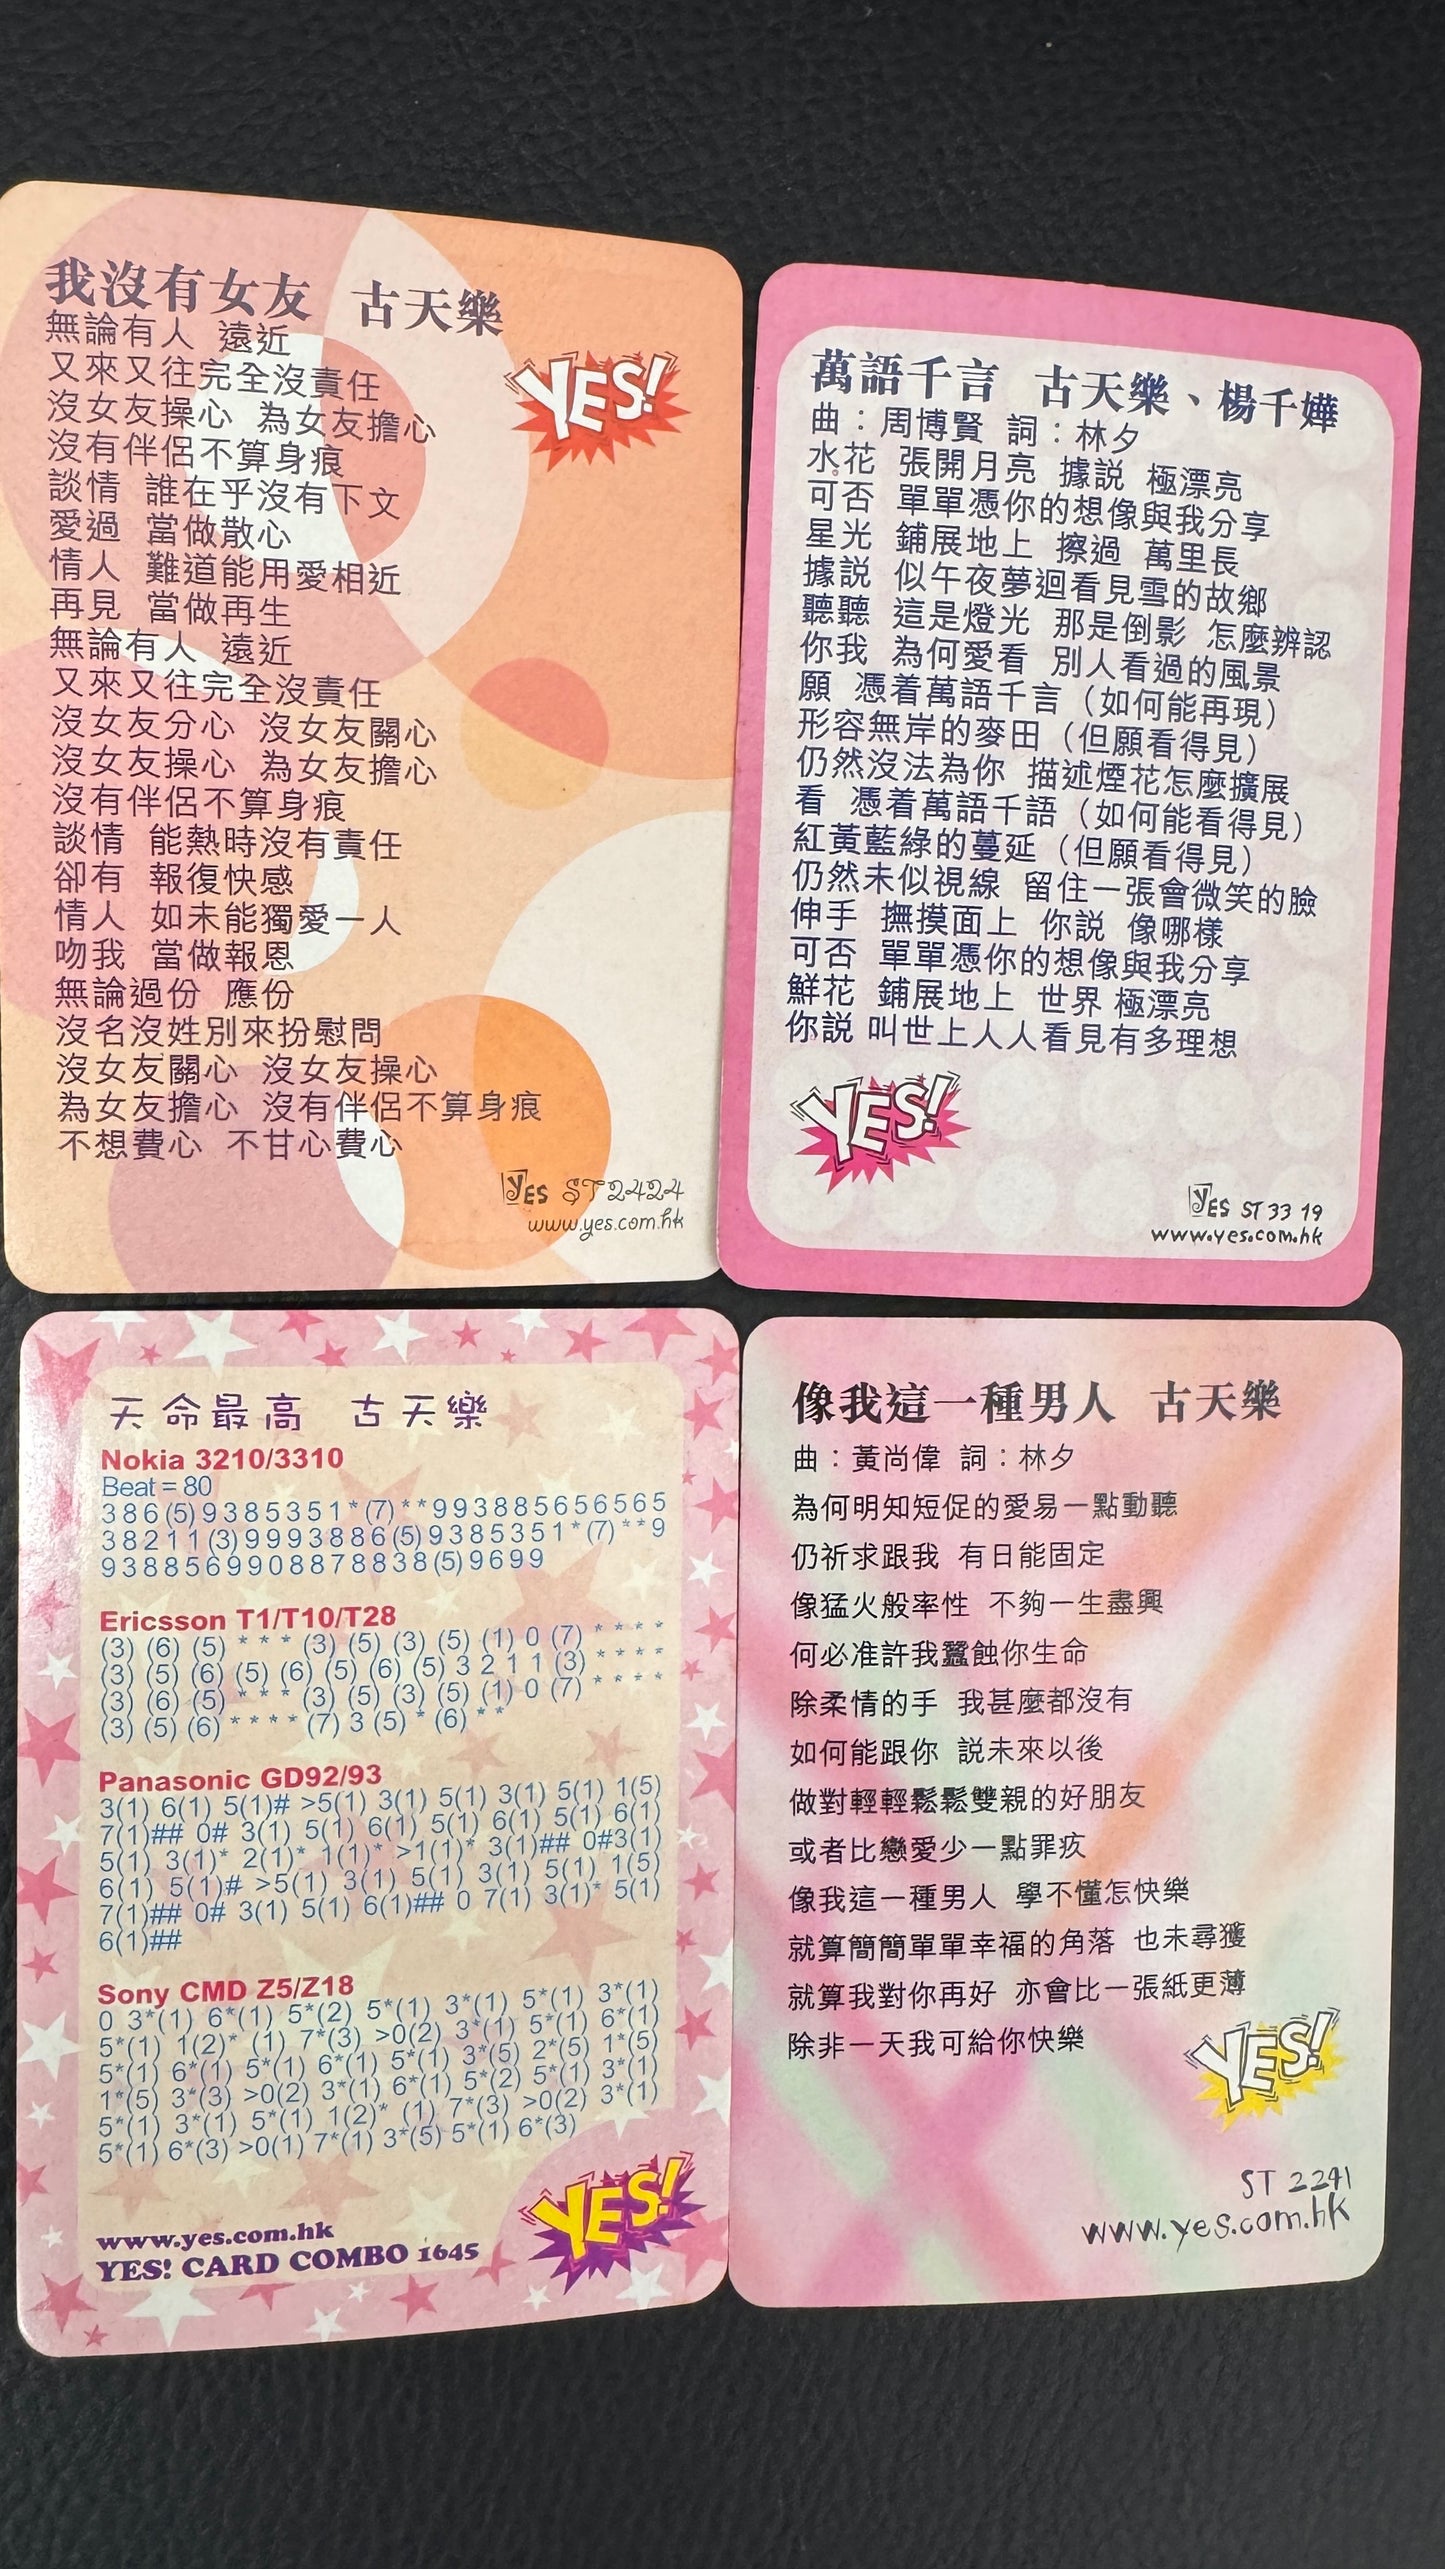 我沒有女友 古天樂
無論有人 遠近
又來又往完全沒責任
沒女友操心 為女友擔心
沒有伴侶不算身痕
談情 誰在乎沒有下文
愛過 當做散心
情人 難道能用愛相近
再見 當做再生
無論有人 遠近
又來又往完全沒責任
沒女友分心 沒女友關心
沒女友操心 為女友擔心
沒有伴侶不算身痕
談情 能熱時沒有責任
卻有 報復快感
情人 如未能獨愛一人
吻我 當做報恩
無論過份 應份
沒名沒姓別來扮慰問
沒女友關心 沒女友操心
為女友擔心 沒有伴侶不算身痕
不想費心 不甘心費心
YES!
YES ST2424
www.yes.com.hk
萬語千言 古天樂、楊千嬅
曲：周博賢 詞：林夕
水花 張開月亮 據説 極漂亮
可否 單單憑你的想像與我分享
星光 鋪展地上 擦過 萬里長
據説 似午夜夢迴看見雪的故鄉
聽聽 這是燈光 那是倒影 怎麼辨認
你我 為何愛看 別人看過的風景
願 憑着萬語千言（如何能再現）
形容無岸的麥田（但願看得見）
仍然沒法為你 描述煙花怎麼擴展
看 憑着萬語千語（如何能看得見）
紅黃藍綠的蔓延（但願看得見）
仍然未似視線 留住一張會微笑的臉
伸手 撫摸面上 你説 像哪樣
可否 單單憑你的想像與我分享
鮮花 鋪展地上 世界 極漂亮
你説 叫世上人人看見有多理想
YES!
YES ST 33 19
www.yes.com.hk
天命最高 古天樂
Nokia 3210/3310
Beat = 80
3 8 6 (5) 9 3 8 5 3 5 1 * (7) * * 9 9 3 8 8 5 6 5 6 5 6 5
3 8 2 1 1 (3) 9 9 9 3 8 8 6 (5) 9 3 8 5 3 5 1 * (7) * * 9
9 3 8 8 5 6 9 9 0 8 8 7 8 8 3 8 (5) 9 6 9 9
Ericsson T1/T10/T28
(3) (6) (5) * * * (3) (5) (3) (5) (1) 0 (7) * * * *
(3) (5) (6) (5) (6) (5) (6) (5) 3 2 1 1 (3) * * * *
(3) (6) (5) * * * (3) (5) (3) (5) (1) 0 (7) * * * *
(3) (5) (6) * * * * (7) 3 (5) * (6) * *
Panasonic GD92/93
3(1) 6(1) 5(1)# >5(1) 3(1) 5(1) 3(1) 5(1) 1(5)
7(1)## 0# 3(1) 5(1) 6(1) 5(1) 6(1) 5(1) 6(1)
5(1) 3(1)* 2(1)* 1(1)* >1(1)* 3(1)## 0#3(1)
6(1) 5(1)# >5(1) 3(1) 5(1) 3(1) 5(1) 1(5)
7(1)## 0# 3(1) 5(1) 6(1)## 0 7(1) 3(1)* 5(1)
6(1)##
Sony CMD Z5/Z18
0 3*(1) 6*(1) 5*(2) 5*(1) 3*(1) 5*(1) 3*(1)
5*(1) 1(2)* (1) 7*(3) >0(2) 3*(1) 5*(1) 6*(1)
5*(1) 6*(1) 5*(1) 6*(1) 5*(1) 3*(5) 2*(5) 1*(5)
1*(5) 3*(3) >0(2) 3*(1) 6*(1) 5*(2) 5*(1) 3*(1)
5*(1) 3*(1) 5*(1) 1(2)* (1) 7*(3) >0(2) 3*(1)
5*(1) 6*(3) >0(1) 7*(1) 3*(5) 5*(1) 6*(3)
www.yes.com.hk
YES! CARD COMBO 1645
YES!
像我這一種男人 古天樂
曲：黃尚偉 詞：林夕
為何明知短促的愛易一點動聽
仍祈求跟我 有日能固定
像猛火般率性 不夠一生盡興
何必准許我蠶蝕你生命
除柔情的手 我甚麼都沒有
如何能跟你 説未來以後
做對輕輕鬆鬆雙親的好朋友
或者比戀愛少一點罪疚
像我這一種男人 學不懂怎快樂
就算簡簡單單幸福的角落 也未尋獲
就算我對你再好 亦會比一張紙更薄
除非一天我可給你快樂
YES!
ST 2241
www.yes.com.hk